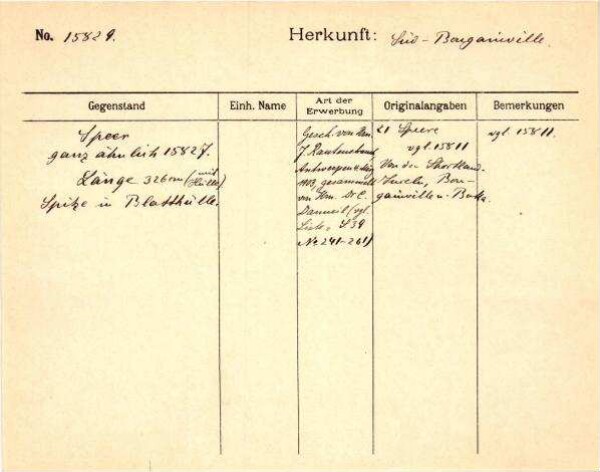 No. 15829. Herkunft: Süd-Bougainville.
Gegenstand
Einh. Name
Art der Erwerbung
Originalangaben
Bemerkungen
Speer
ganz ähnlich 15827.
Länge 326 cm (mit Hülle)
Spitze in Blatthülle.
Gesch. von Hrn.
J.
Antwerpen
gesammelt
von Hrn. Dr. E.
(vgl.
Liste, S 39
No 241-261)
21 Speere
vgl. 15811
Von den Shortland
Inseln, Bou-
gainville u. Buka.
vgl. 15811.